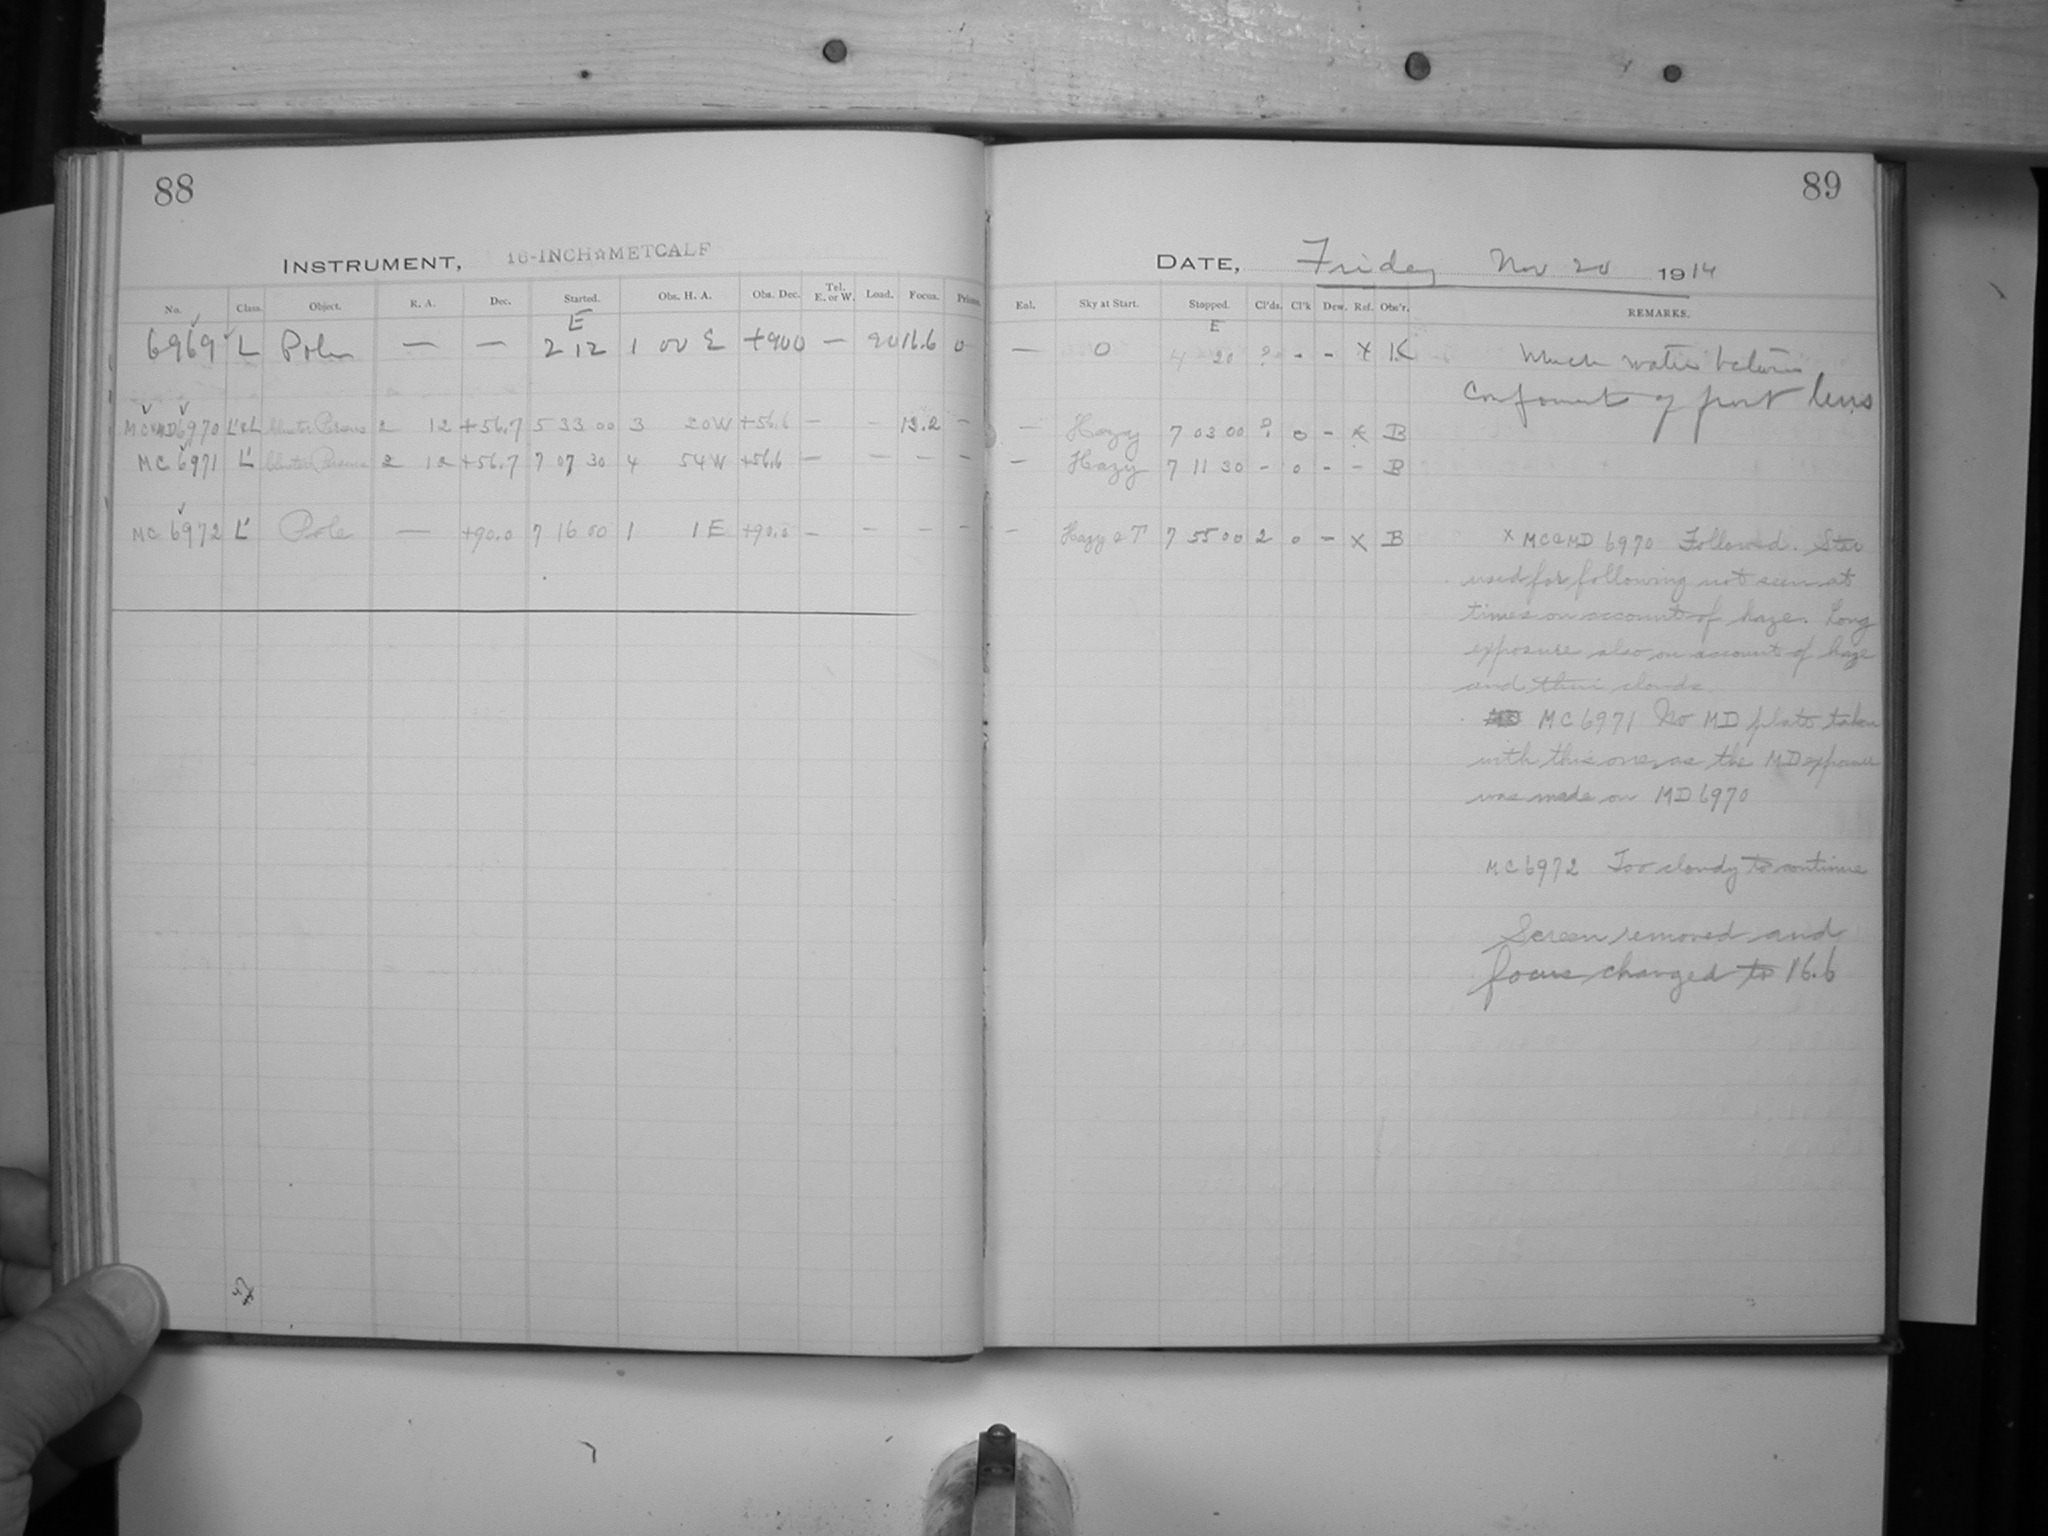 88
INSTRUMENT, 16-INCH☆METCALF
No. Class. Object. R. A. Dec. Started. Obs. H. A. Obs. Dec. Tel. E. or W. Load. Focus. Prisms.
E
6969 L Pole — — 2 12 1 00 E +900 — 90 16.6 0
MC&MD6970 L'&L Cluster Perseus 2 12 +56.7 5 33 00 3 20W +56.6 — — 13.2 —
MC 6971 L' Cluster Perseus 2 12 +56.7 7 07 30 4 54W +56.6 — — — —
MC 6972 L' Pole — +90.0 7 16 00 1 1 E +90.0 — — — —
89
DATE, Friday Nov 20 1914
Eol. Sky at Start. Stopped. Cl'ds. Cl'k Dew. Ref. Obs'r. REMARKS.
E
— 0 4 20 ? - - x K Much water between
components of front lens
— Hazy 7 03 00 ? 0 - x B
— Hazy 7 11 30 - 0 - - B
— Hazy & T 7 55 00 2 0 - x B x MC&MD 6970 Followed. Star
used for following not seen at
times on account of haze. Long
exposure also on account of haze
and thin clouds
MC 6971 No MD plate taken
with this one, as the MD exposure
was made on MD 6970
MC 6972 Too cloudy to continue
Screen removed and
focus changed to 16.6